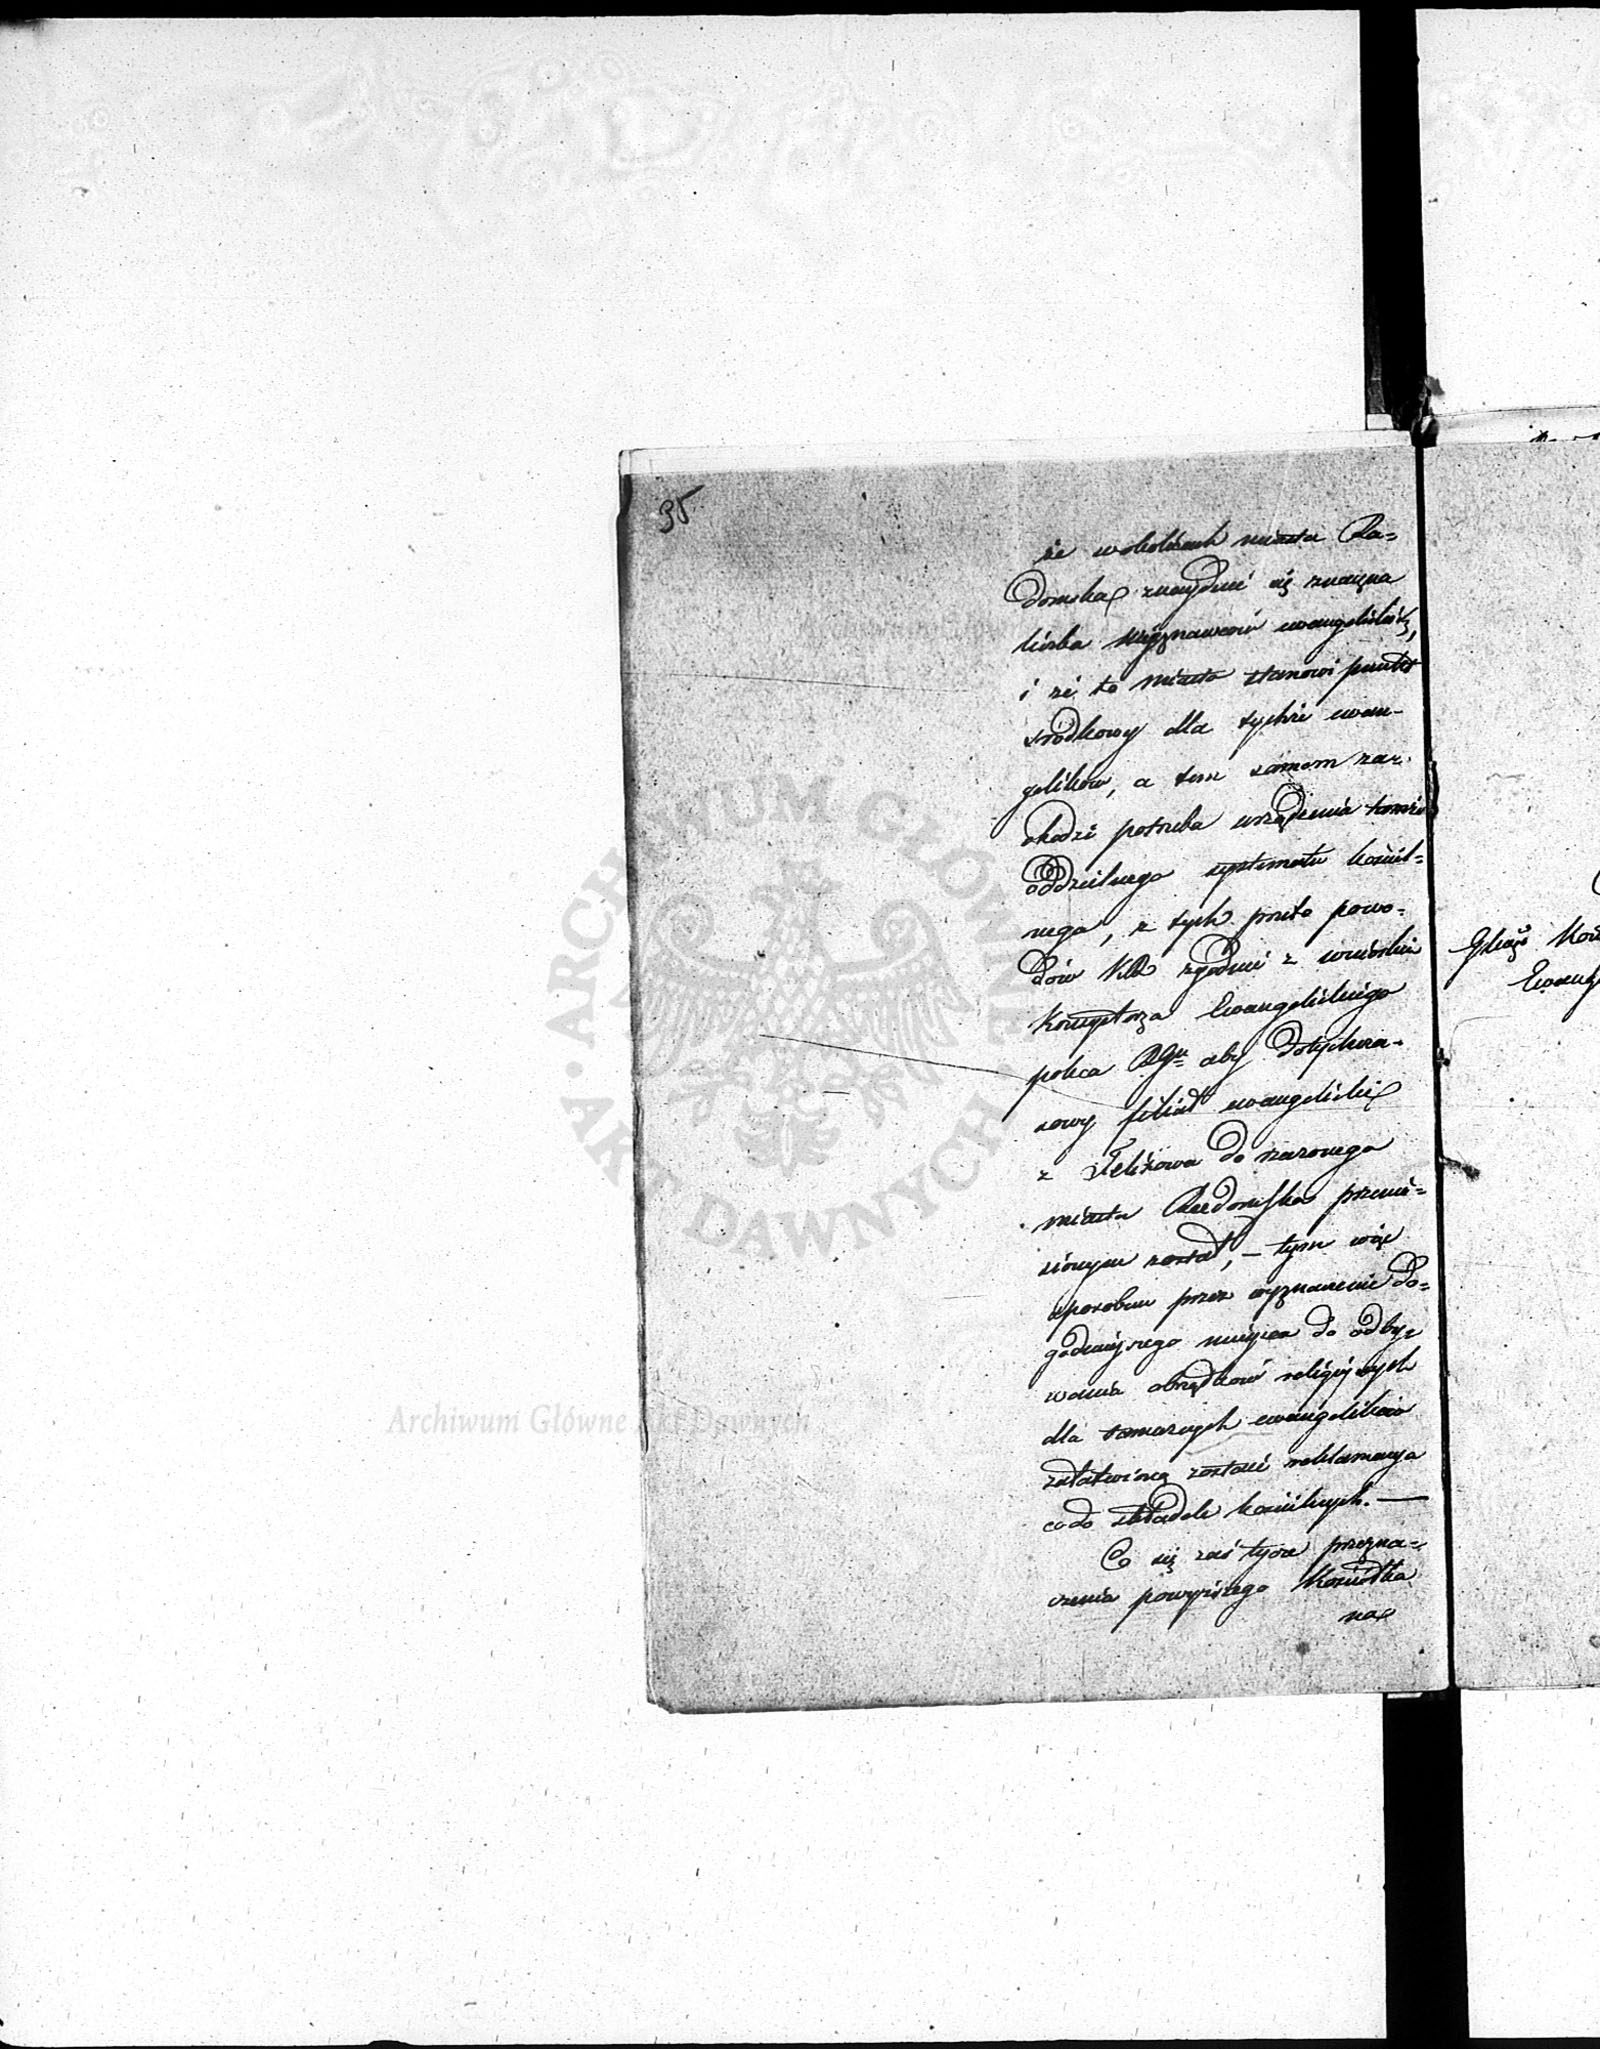 35
że w okolicach miasta Ra=
domska znayduie się znaczna
liczba wyznawców ewangelickich,
i że to miasto stanowi punkt
środkowy dla tychże ewan-
gelików, a tem samem za=
chodzi potrzeba urządzenia tamże
oddzielnego systematu kościel=
nego, z tych przeto powo=
dów KR zgodnie z wnioskiem
Konsystorza Ewangelickiego
poleca RGu aby dotychcza-
sowy filiał ewangelicki
z Teklinowa do rzeczonego
miasta Radomska przenie=
sionym został, — tym więc
sposobem przez wyznaczenie do=
godnieyszego mieysca do odby=
wania obrzędków religiynych
dla tamecznych ewangelików
załatwioną zostanie reklamacya
co do składek kościelnych. —
Co się zaś tycze przezna=
czenia powyższego Kościołka
na
Głwgo Kon
Ewang
ARCHIWUM GŁÓWNE
AKT DAWNYCH
Archiwum Główne Akt Dawnych